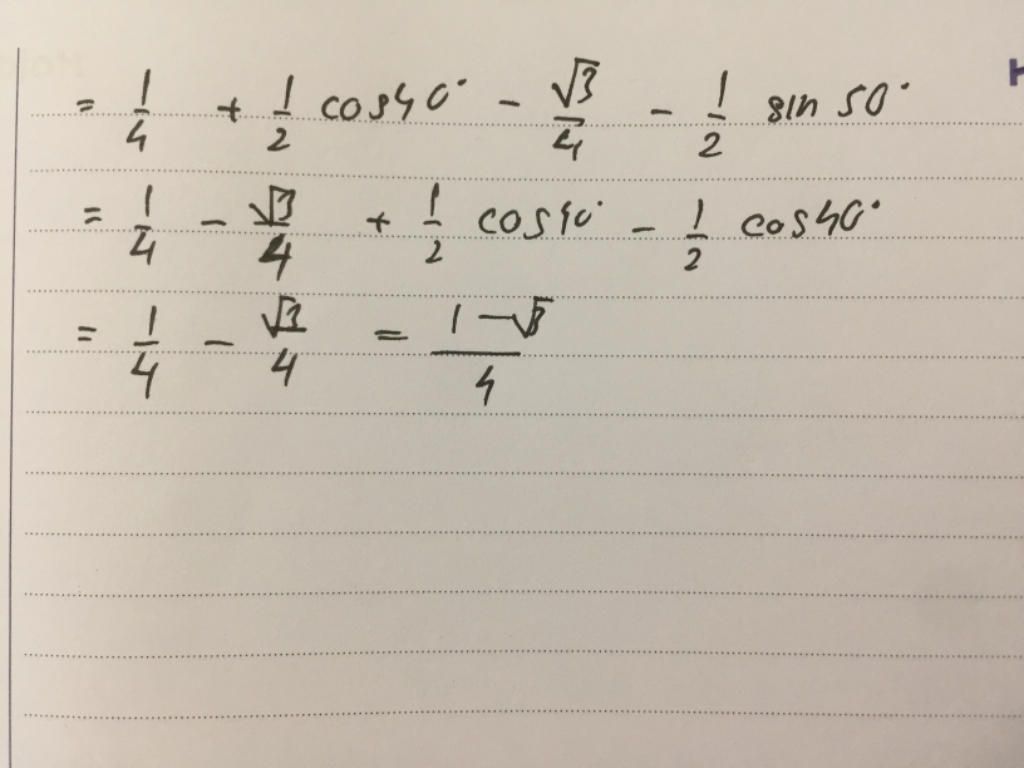 = 1/4 + 1/2 cos40° - √3/4 - 1/2 sin 50°
= 1/4 - √3/4 + 1/2 cos40° - 1/2 cos40°
= 1/4 - √3/4 = 1-√3/4